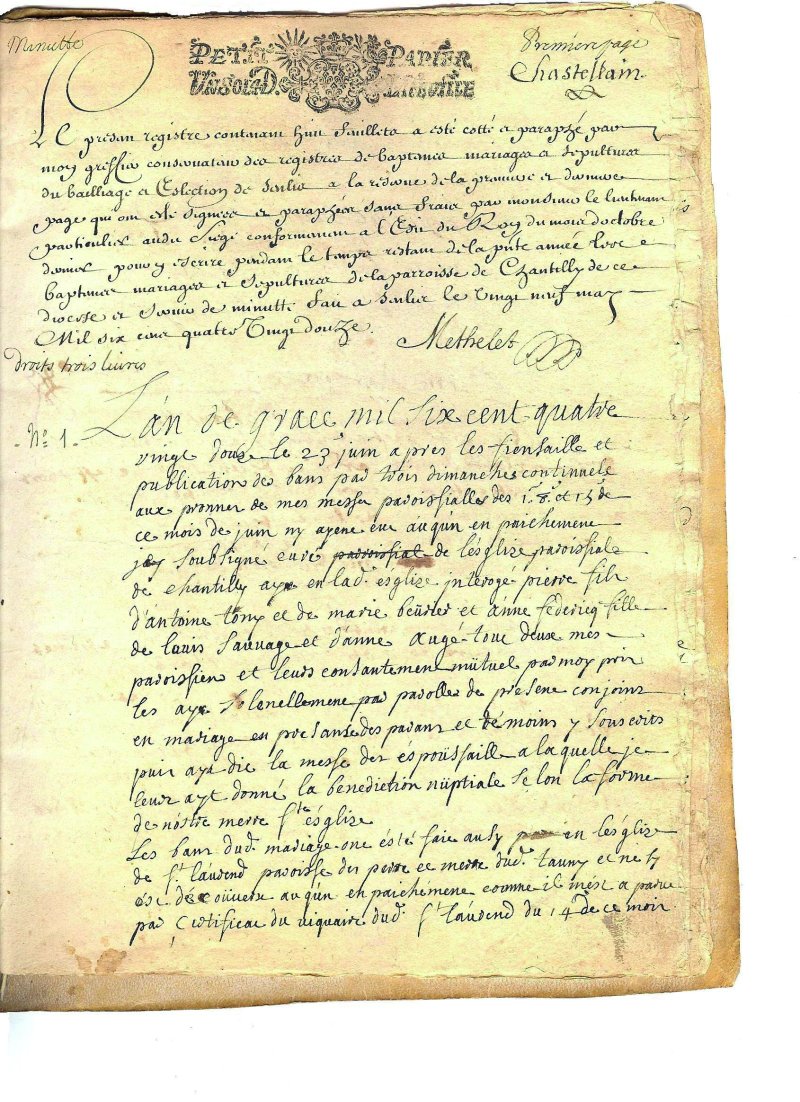 Minutte
PETIT PAPIER
UN SOL LAD.
Premiere page
Chastellain
LE presan registre contenam huit feuillets a esté cotté et paraphé par
moy greffier conservateur des registres de baptemes mariages et sepultures
du bailliage et Eslection de Senlis a la reserve de la premiere et derniere
page qui ont esté signées et paraphées sans frais par monsieur le lieutenant
particulier audit Siege conformement a l'Edit du Roy du mois d'octobre
dernier pour y escrire pendam le temps restam de la pnte année les
baptemes mariages et sepultures de la parroisse de Chantilly de ce
diocese et servir de minutte fait a Senlis le Vingt neuf may
Mil six cens quatre Vingt douze.
Methelet
droits trois livres
No 1.
L'an de grace mil six cent quatre
vingt douse le 23 juin apres les fiensaille et
publication de bans par trois dimanches continuels
aux pronner de mes messes paroissialles des 1r 8e et 15e de
ce mois de juin ny ayene eue auqún en paichemene
jey soubsigné curé paroissial de léglize paroissiale
de Chantilly aye en lad. églize jnterogé pierre fils
d'antoine tony et de marie beúrier et anne federicq fille
de louis Sauvage et d'anne augé toue deux mes
paroissiens et leurs consantement mütuel par moy pris
les aye solenellemene par parolles de presene conjoins
en mariage en presanse des parans et témoins y souscrits
puis aye die la messe des époussaille a laquelle je
leur aye donné la benediction nüptiale selon la forme
de nóstre merre Ste églize
Les bans dud. mariage one été faie ausy en léglize
de St laúrend paroisse des perre et merre dud. tauny et ne sy
ést découvere auqún enpaichemene comme il mést aparue
par Certificat du viquaire dud. St laúrend du 14 de ce mois.